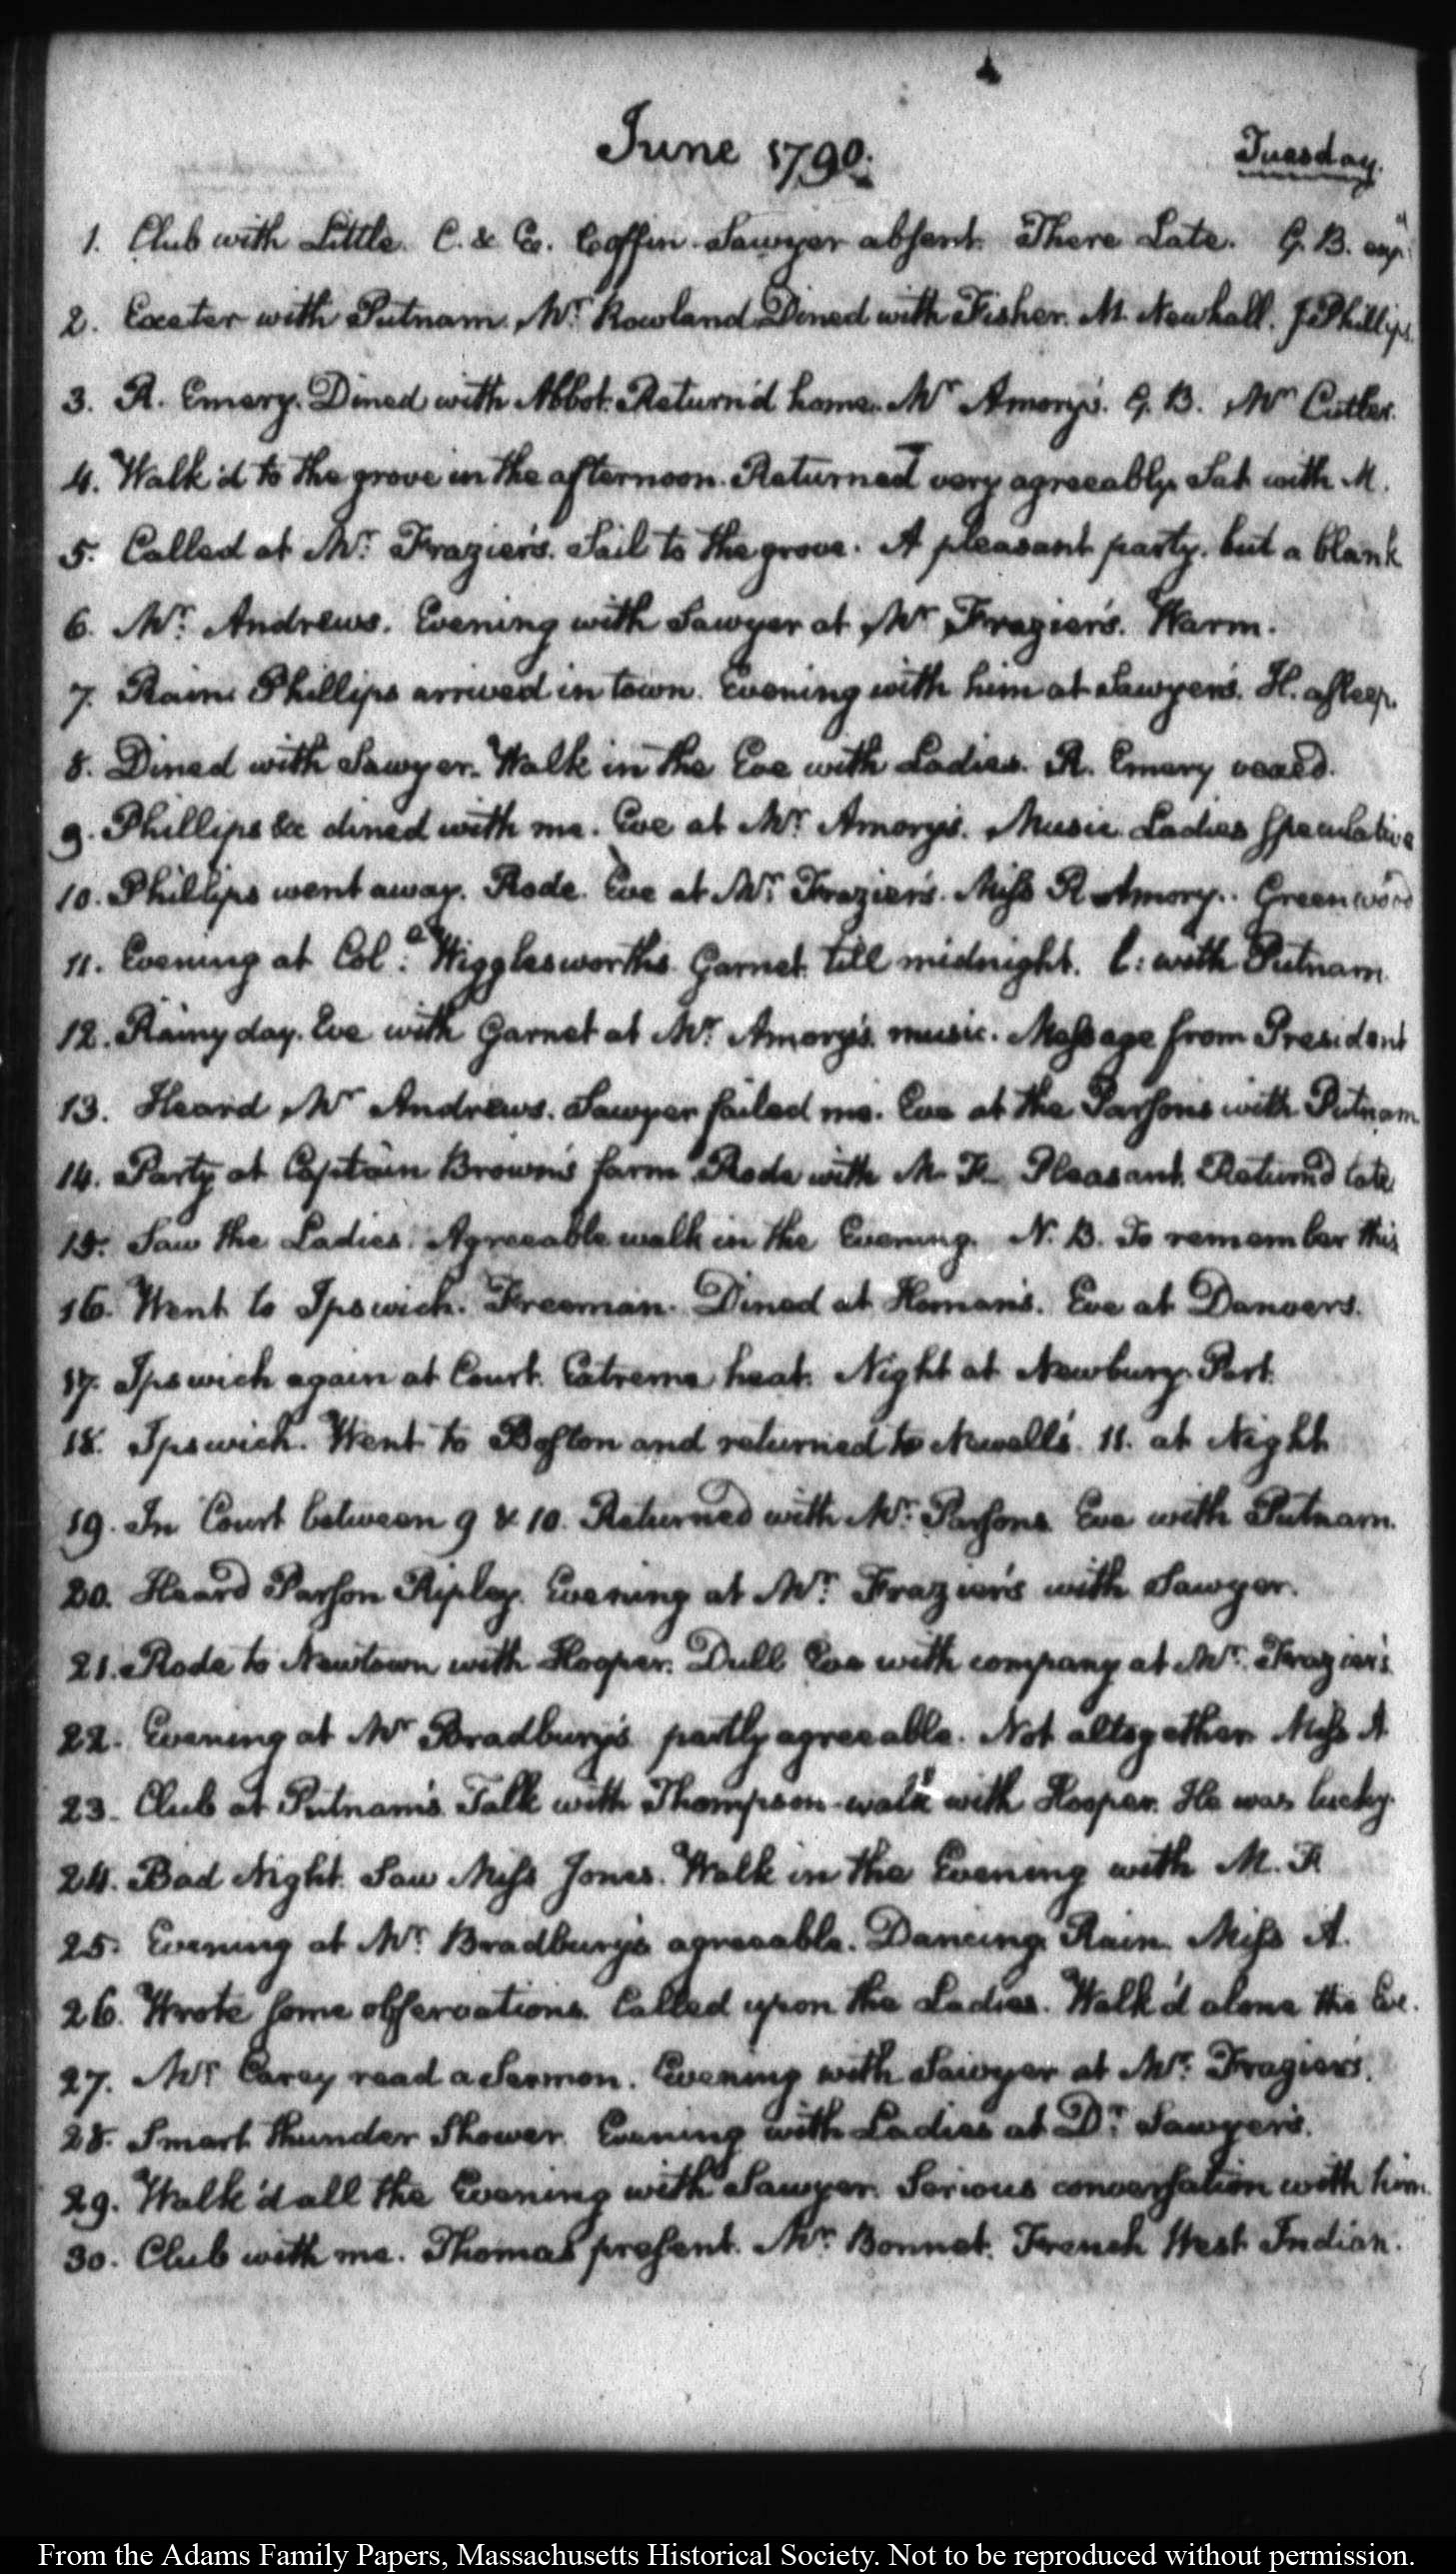 June 1790.
Tuesday.
1. Club with Little. C. & Co. Coffin. Sawyer absent. There Late. G. B.
2. Exeter with Putnam. Mr. Rowland Dined with Fisher. M. Newhall. J Phillips
3. R. Emery. Dined with Abbot. Return'd home. Mr Amory's. G. B. Mr Cutler.
4. Walk'd to the grove in the afternoon. Returned very agreeably. Sat with M.
5. Called at Mr. Frazier's. Sail to the grove. A pleasant party. but a blank
6. Mr. Andrews. Evening with Sawyer at Mr Frazier's. Warm.
7. Rain. Phillips arrived in town. Evening with him at Sawyer's. H. asleep.
8. Dined with Sawyer. Walk in the Eve with Ladies. R. Emery vexed.
9. Phillips &c dined with me. Eve at Mr. Amory's. Music. Ladies speculative
10. Phillips went away. Rode. Eve at Mr. Frazier's. Miss R Amory. Greenwood
11. Evening at Col: Wigglesworth's. Garnet till midnight. with Putnam.
12. Rainy day. Eve with Garnet at Mr. Amory's. music. Message from President
13. Heard Mr Andrews. Sawyer failed me. Eve at the Parsons with Putnam
14. Party at Captain Brown's farm Rode with M. F. Pleasant. Return'd late
15. Saw the Ladies. Agreeable walk in the Evening. N. B. To remember this
16. Went to Ipswich. Freeman. Dined at Homan's. Eve at Danvers.
17. Ipswich again at Court. Extreme heat. Night at Newbury-Port.
18. Ipswich. Went to Boston and returned to Newell's. 11. at Night
19. In Court between 9 & 10. Returned with Mr. Parsons. Eve with Putnam.
20. Heard Parson Ripley. Evening at Mr. Frazier's with Sawyer.
21. Rode to Newtown with Hooper. Dull Eve with company at Mr. Frazier's
22. Evening at Mr Bradbury's partly agreeable. Not altogether. Miss A
23. Club at Putnam's. Talk with Thompson. walk with Hooper. He was lucky.
24. Bad Night. Saw Miss Jones. Walk in the Evening with M. F.
25. Evening at Mr. Bradbury's agreeable. Dancing. Rain. Miss A.
26. Wrote some observations. Called upon the Ladies. Walk'd alone the Eve.
27. Mr Carey read a Sermon. Evening with Sawyer at Mr. Frazier's.
28. Smart thunder Shower. Evening with Ladies at Dr. Sawyer's.
29. Walk'd all the Evening with Sawyer. Serious conversation with him.
30. Club with me. Thomas present. Mr. Bonnet. French West Indian.
From the Adams Family Papers, Massachusetts Historical Society. Not to be reproduced without permission.